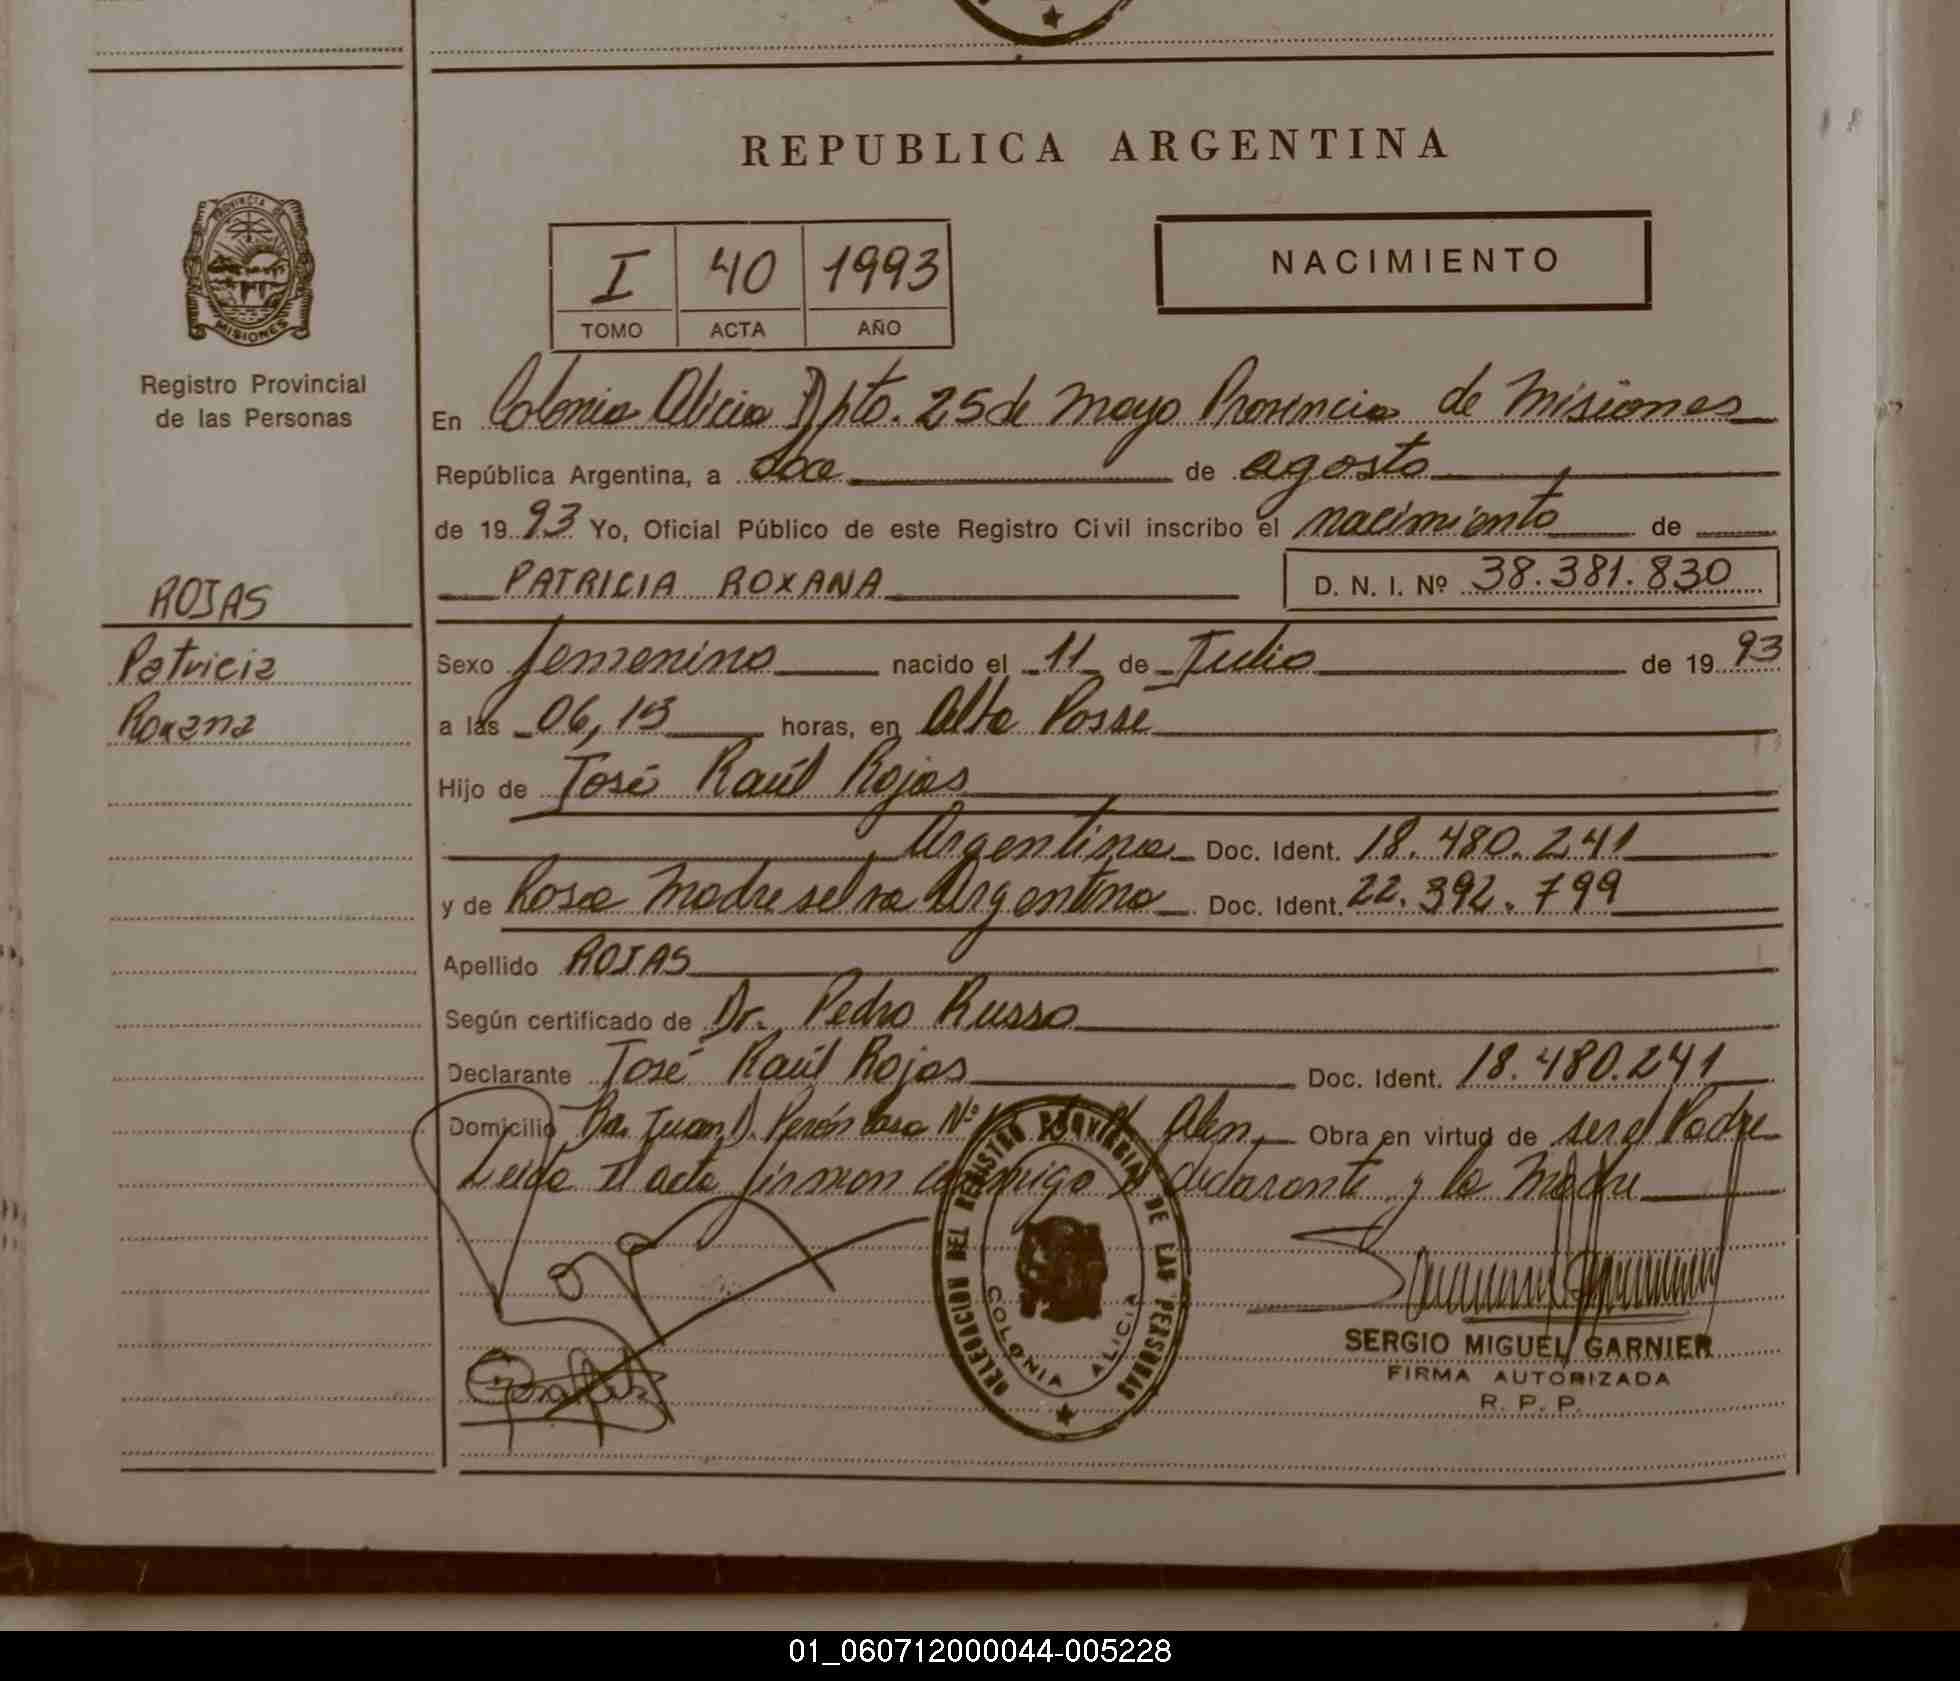 REPUBLICA ARGENTINA
PROVINCIA DE
MISIONES
Registro Provincial
de las Personas
I 40 1993
TOMO ACTA AÑO
NACIMIENTO
En Colonia Alicia Dpto. 25 de Mayo Provincia de Misiones
República Argentina, a doce de agosto
de 1993 Yo, Oficial Público de este Registro Civil inscribo el nacimiento de
PATRICIA ROXANA D. N. I. Nº 38.381.830
ROJAS
Patricia
Roxana
Sexo femenino nacido el 11 de Julio de 1993
a las 06,15 horas, en Alba Posse
Hijo de José Raúl Rojas
Argentina Doc. Ident. 18.480.241
y de Rosa Madreselva Argentina Doc. Ident. 22.392.799
Apellido ROJAS
Según certificado de Dr. Pedro Russo
Declarante José Raúl Rojas Doc. Ident. 18.480.241
Domicilio Bo. Juan D. Perón Casa Nº Alen Obra en virtud de ser el Padre
Leida el acta firman conmigo el declarante y la Madre
DELEGACION DEL REGISTRO PROVINCIAL DE LAS PERSONAS
COLONIA ALICIA
SERGIO MIGUEL GARNIER
FIRMA AUTORIZADA
R. P. P.
01_060712000044-005228